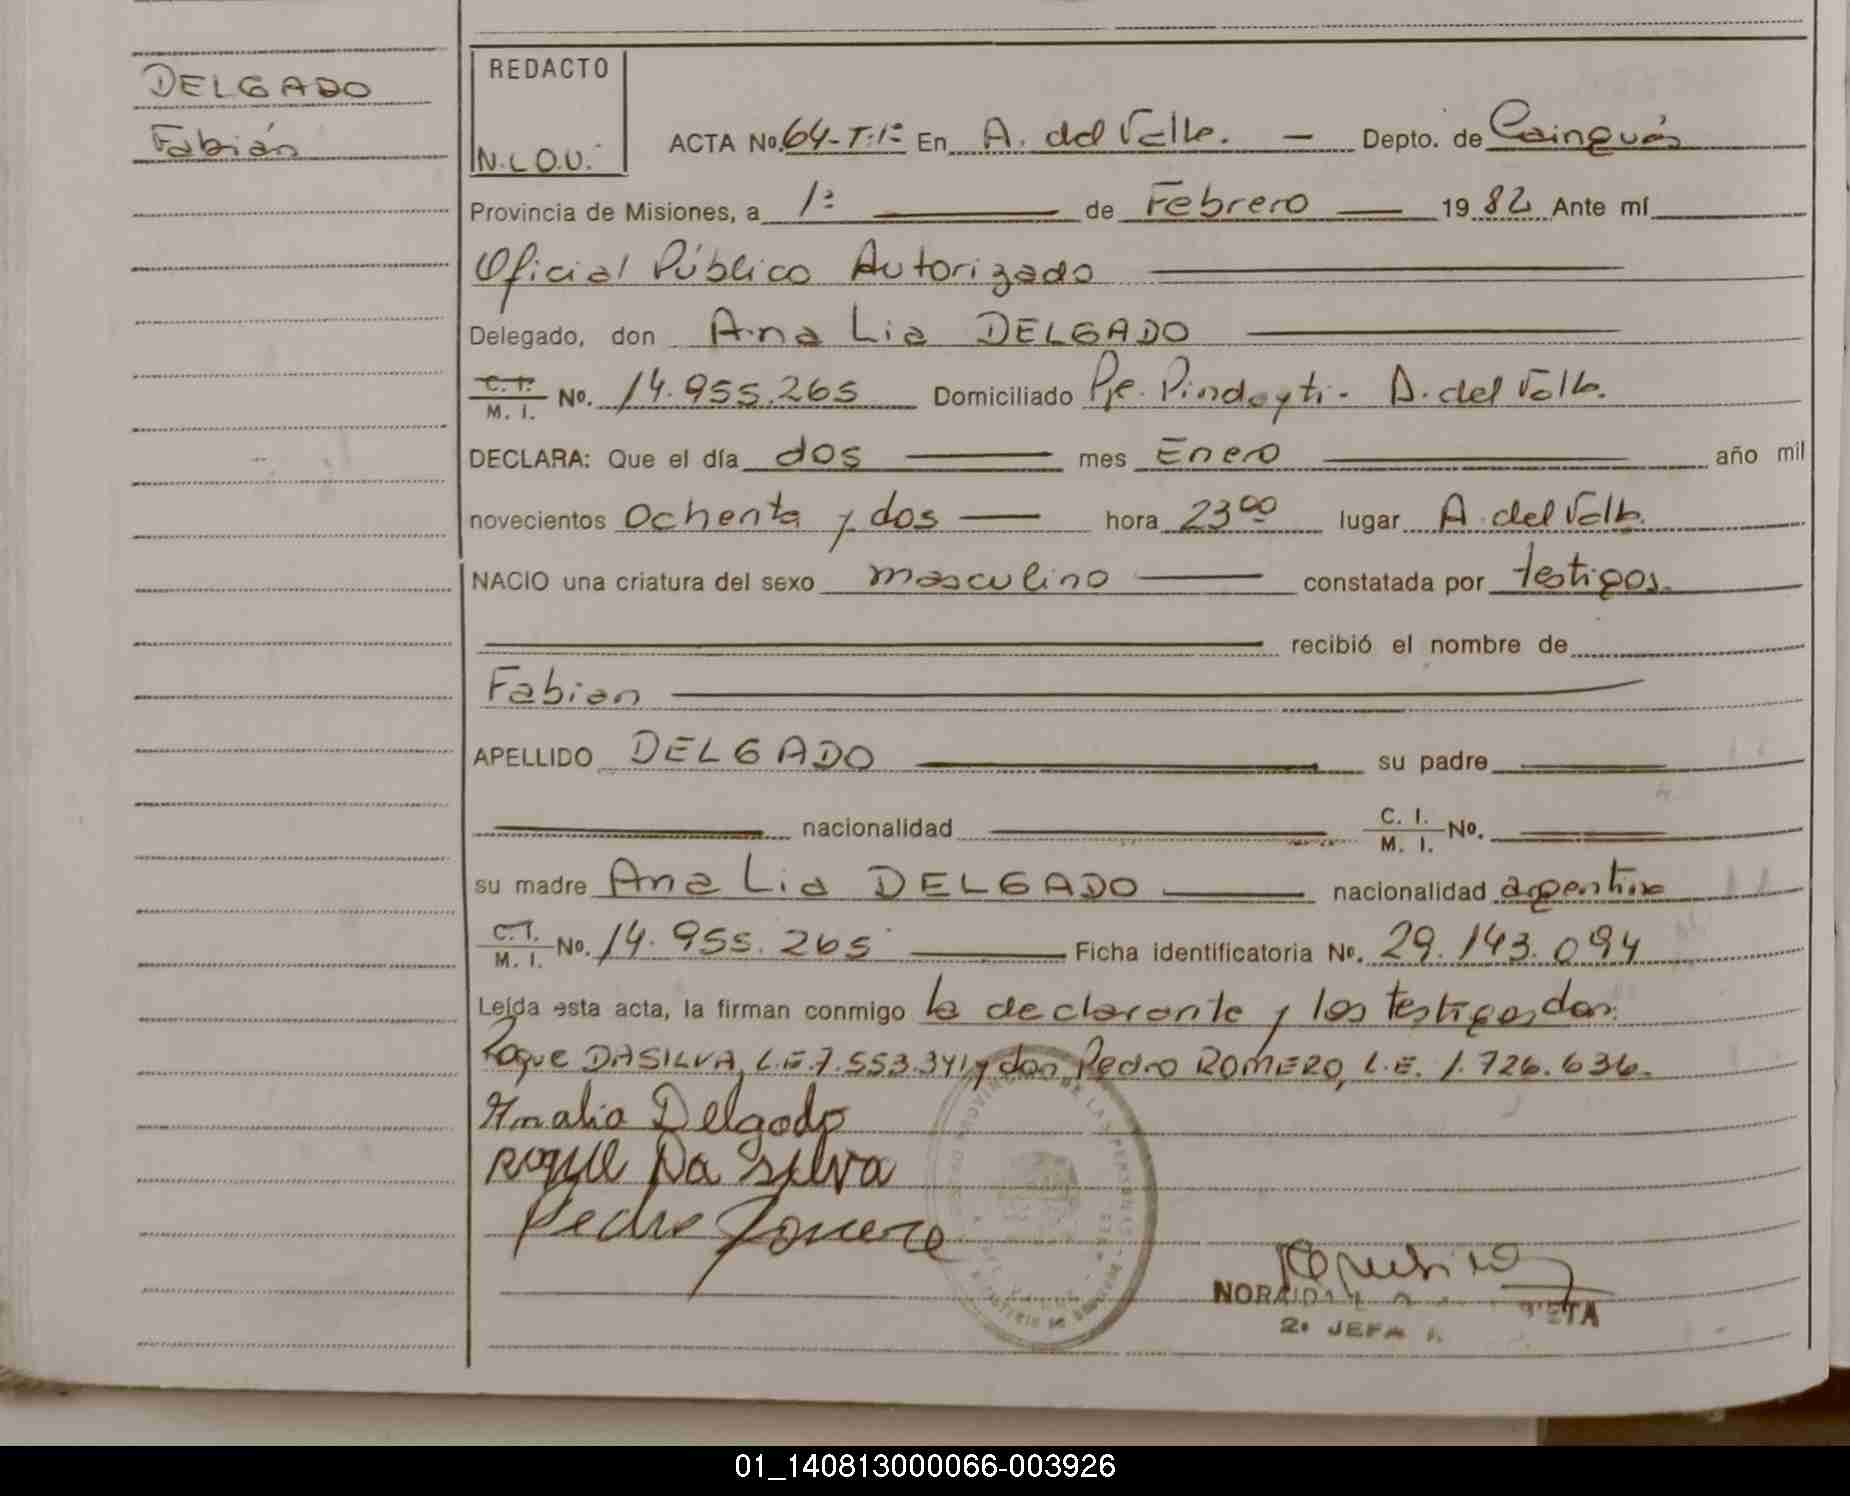 DELGADO
Fabián
REDACTO
N.L.O.U.
ACTA No. 64-T:1º En A. del Valle. — Depto. de Cainguás
Provincia de Misiones, a 1º de Febrero 1982 Ante mí
Oficial Público Autorizado
Delegado, don Ana Lia DELGADO
C. I. M. I. No. 14.955.265 Domiciliado Pje. Pindayti - A. del Valle.
DECLARA: Que el día dos mes Enero año mil
novecientos Ochenta y dos hora 23 00 lugar A. del Valle.
NACIO una criatura del sexo masculino constatada por testigos.
recibió el nombre de
Fabian
APELLIDO DELGADO su padre
nacionalidad C. I. M. I. No.
su madre Ana Lia DELGADO nacionalidad argentina
C. I. M. I. No. 14.955.265 Ficha identificatoria No. 29.143.094
Leída esta acta, la firman conmigo la declarante y los testigos don
Roque DASILVA, L.E. 7.553.341 y don Pedro ROMERO, L.E. 1.726.636.
Analia Delgado
Roque Da Silva
Pedro Romero
2a JEFA
01_140813000066-003926